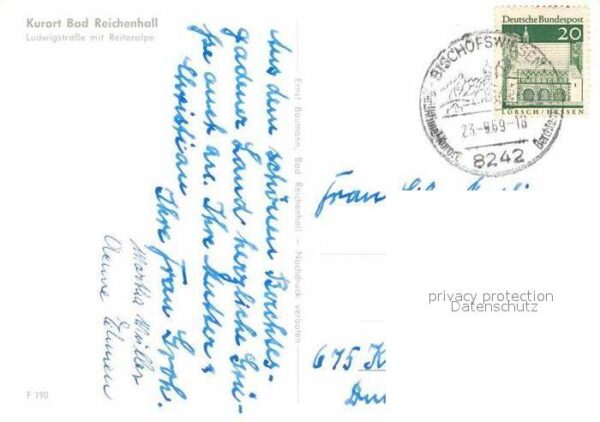 Kurort Bad Reichenhall
Ludwigstraße mit Reiteralpe
Aus dem schönen Berchtes-
gadener Land herzliche Grü-
ße auch an Ihre Mutter u.
Christian
Ihre Frau Groh.
Martha Müller
F 190
Ernst Baumann, Bad Reichenhall — Nachdruck verboten —
Deutsche Bundespost
20
LORSCH/HESSEN
BISCHOFSWIESEN
23.-9.69-18
8242
Frau
675 K
privacy protection
Datenschutz